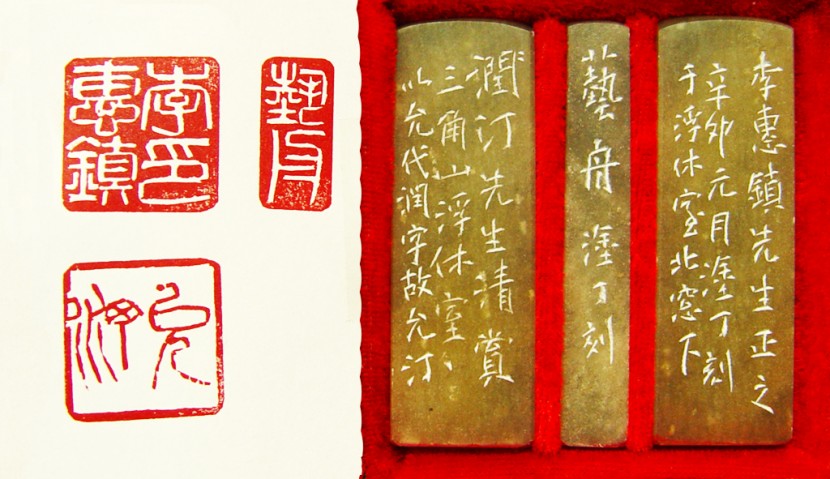 李印
惠鎮
埶舟
允汀
李惠鎮先生正之
辛卯元月塗丁刻
于浮休室北窓下
藝舟 塗丁刻
潤汀先生清賞
三角山浮休室
以允代潤字故允汀